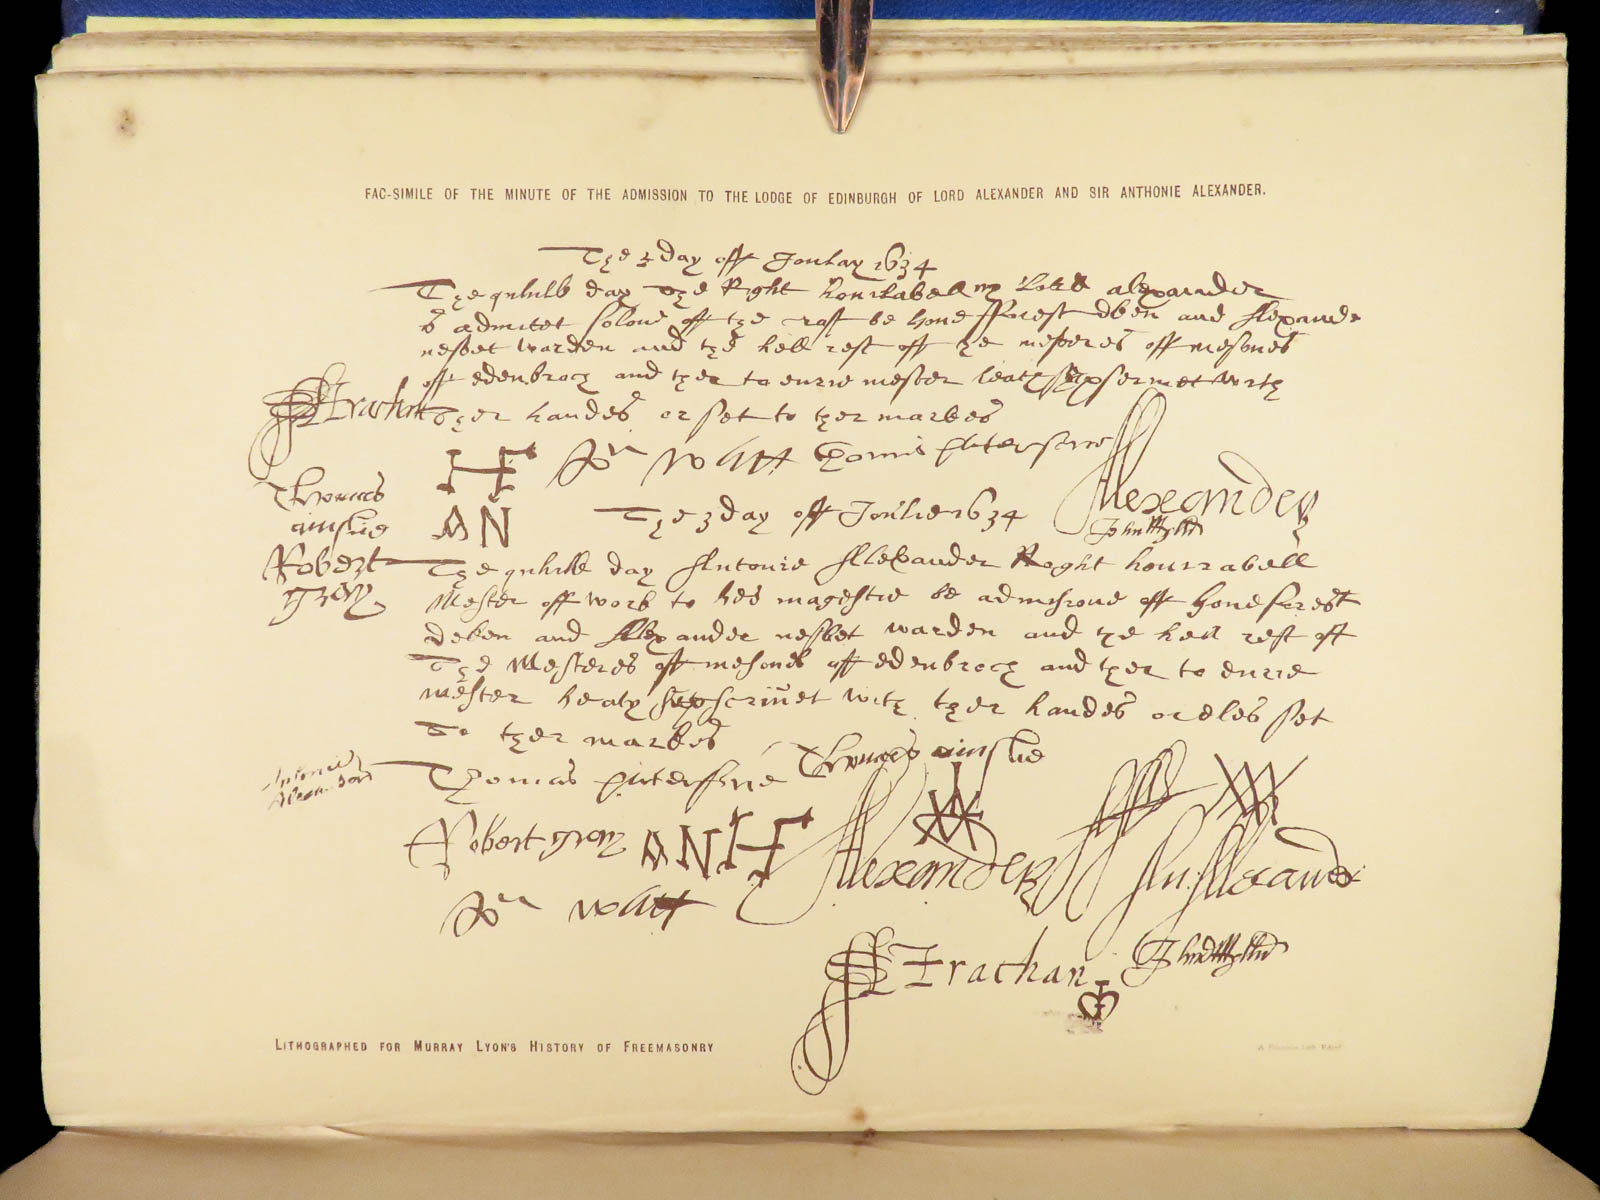 FAC-SIMILE OF THE MINUTE OF THE ADMISSION TO THE LODGE OF EDINBURGH OF LORD ALEXANDER AND SIR ANTHONIE ALEXANDER.
The 3 day off Joulay 1634
The quhilk day the Right honirabell my Lord alexander
is admitet folowe off the craft be hewe fforest dken and Alexander
nesbet warden and the hell rest off the mesteres off mesones
off edenbroch and ther to eurie mester heath supscruet with
ther handes or set to ther markes
JStrachan
Jn Watt Thomas Paterson
Alexander
Thomas
ainslie
AN
John Mylln
Robert
gray
The 3 day off Joulie 1634
The quhilk day Antonie Alexander Right honirabell
Mester off work to hes magestie be admisione off hewe forest
deken and Alexander nesbet warden and the hell rest off
The Mesteres off mesones off edenbroch and ther to eurie
mester heath supscriuet with ther handes or eles set
To ther markes
Antonie
Alexander
Thomas Paterson Thomas ainslie
Robert gray AN Alexander An Alexander
Jn Watt
JStrachan John Mylln
LITHOGRAPHED FOR MURRAY LYON'S HISTORY OF FREEMASONRY